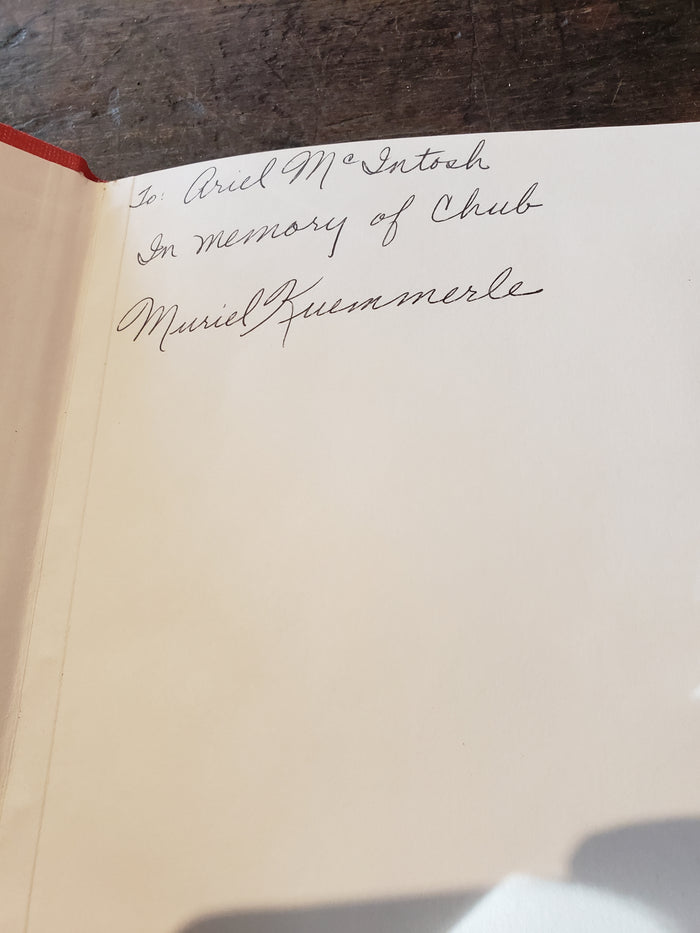 To: Ariel McIntosh
In memory of Chub
Muriel Kuemmerle